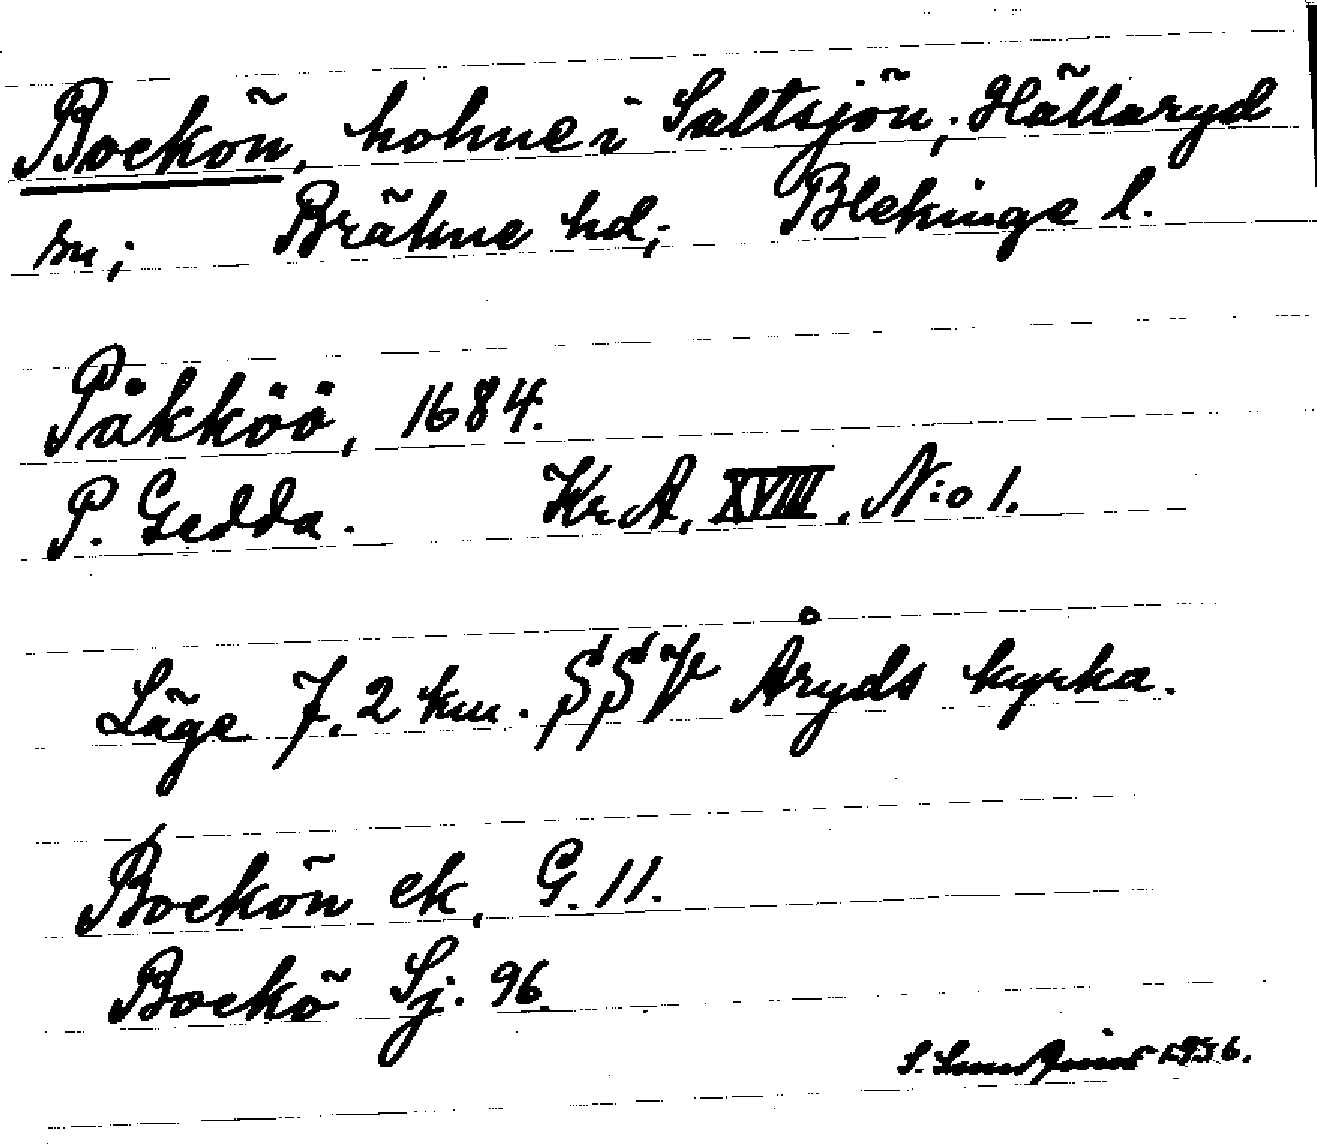 Bockön, holme i Saltsjön; Hällaryd
sn; Bräkne hd; Blekinge l.
Påkköö, 1684.
P. Gedda. Kr. A, XVIII, N:o 1.
Läge 7,2 km. SSV Åryds kyrka.
Bockön ek, G. 11.
Bockö Sj. 96.
1936.